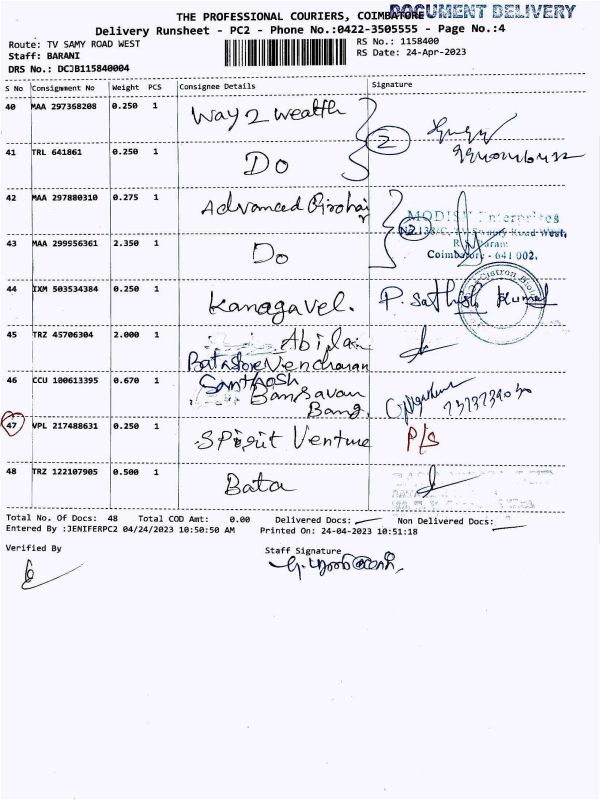 THE PROFESSIONAL COURIERS, COIMBATORE
DOCUMENT DELIVERY
Delivery Runsheet - PC2 - Phone No.:0422-3505555 - Page No.:4
Route: TV SAMY ROAD WEST
RS No.: 1158400
Staff: BARANI
RS Date: 24-Apr-2023
DRS No.: DCJB115840004
S No Consignment No Weight PCS Consignee Details Signature
40 MAA 297368208 0.250 1 Way 2 Wealth
2
41 TRL 641861 0.250 1 Do
42 MAA 297880310 0.275 1 Advanced
2
MODISH Enterprises
43 MAA 299956361 2.350 1 Do
Coimbatore - 641 002.
44 IXM 503534384 0.250 1 Kanagavel. P. Sathish Kumar
45 TRZ 45706304 2.000 1 Abilan
Bata Store
46 CCU 100613395 0.670 1 Santhosh
Bansavan
Bang.
47 VPL 217488631 0.250 1 Spirit Venture P/S
48 TRZ 122107905 0.500 1 Bata
Total No. Of Docs: 48 Total COD Amt: 0.00 Delivered Docs: Non Delivered Docs:
Entered By :JENIFERPC2 04/24/2023 10:50:50 AM Printed On: 24-04-2023 10:51:18
Verified By
Staff Signature